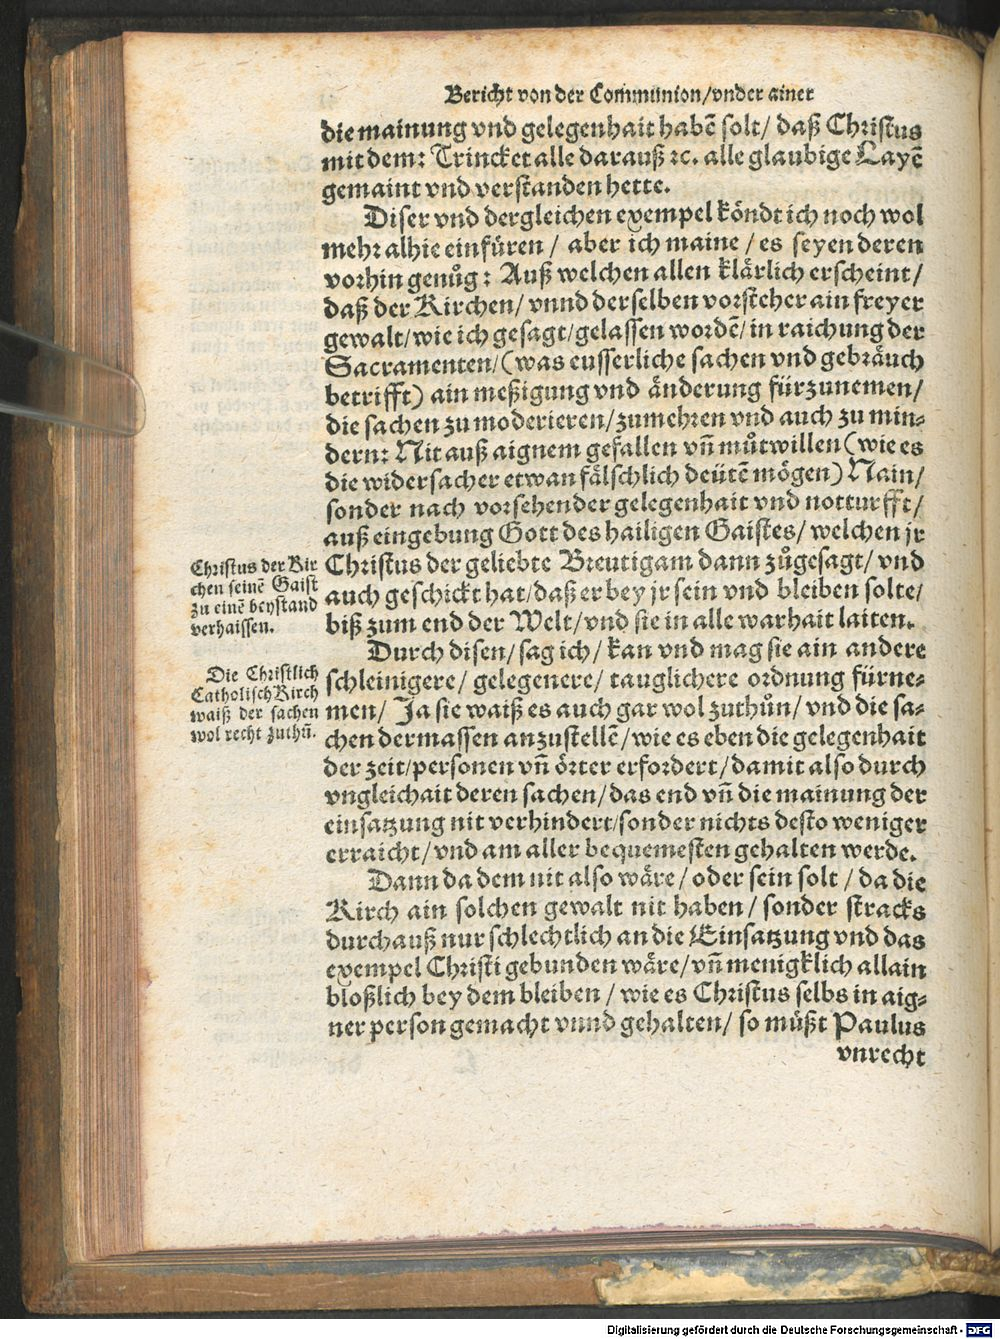 Bericht von der Communion/vnder ainer
die mainung vnd gelegenhait habē solt/ daß Christus
mit dem: Trincket alle darauß ꝛc. alle glaubige Layē
gemaint vnd verstanden hette.
Diser vnd dergleichen exempel köndt ich noch wol
mehr alhie einfüren / aber ich maine / es seyen deren
vorhin genůg: Auß welchen allen klärlich erscheint/
daß der Kirchen/ vnnd derselben vorsteher ain freyer
gewalt/wie ich gesagt/gelassen wordē/in raichung der
Sacramenten/(was eusserliche sachen vnd gebräuch
betrifft) ain meßigung vnd änderung fürzunemen/
die sachen zu moderieren/zumehren vnd auch zu min⸗
dern: Nit auß aignem gefallen vñ můtwillen (wie es
die widersacher etwan fälschlich deütē mögen) Nain/
sonder nach vorsehender gelegenhait vnd notturfft/
auß eingebung Gott des hailigen Gaistes/ welchen jr
Christus der Kir
chen seinē Gaist
zu einē beystand
verhaissen.
Christus der geliebte Breutigam dann zůgesagt/ vnd
auch geschickt hat/daß er bey jr sein vnd bleiben solte/
biß zum end der Welt/vnd sie in alle warhait laiten.
Durch disen/ sag ich/ kan vnd mag sie ain andere
Die Christlich
Catholisch Kirch
waiß der sachen
wol recht zuthů.
schleinigere/ gelegenere/ tauglichere ordnung fürne⸗
men/ Ja sie waiß es auch gar wol zuthůn/ vnd die sa⸗
chen dermassen anzustellē/wie es eben die gelegenhait
der zeit/personen vñ örter erfordert/damit also durch
vngleichait deren sachen/das end vñ die mainung der
einsatzung nit verhindert/sonder nichts desto weniger
erraicht/vnd am aller bequemesten gehalten werde.
Dann da dem nit also wäre/ oder sein solt / da die
Kirch ain solchen gewalt nit haben/ sonder stracks
durchauß nur schlechtlich an die Einsatzung vnd das
exempel Christi gebunden wäre/vñ menigklich allain
bloßlich bey dem bleiben / wie es Christus selbs in aig⸗
ner person gemacht vnnd gehalten/ so müßt Paulus
vnrecht
Digitalisierung gefördert durch die Deutsche Forschungsgemeinschaft - DFG